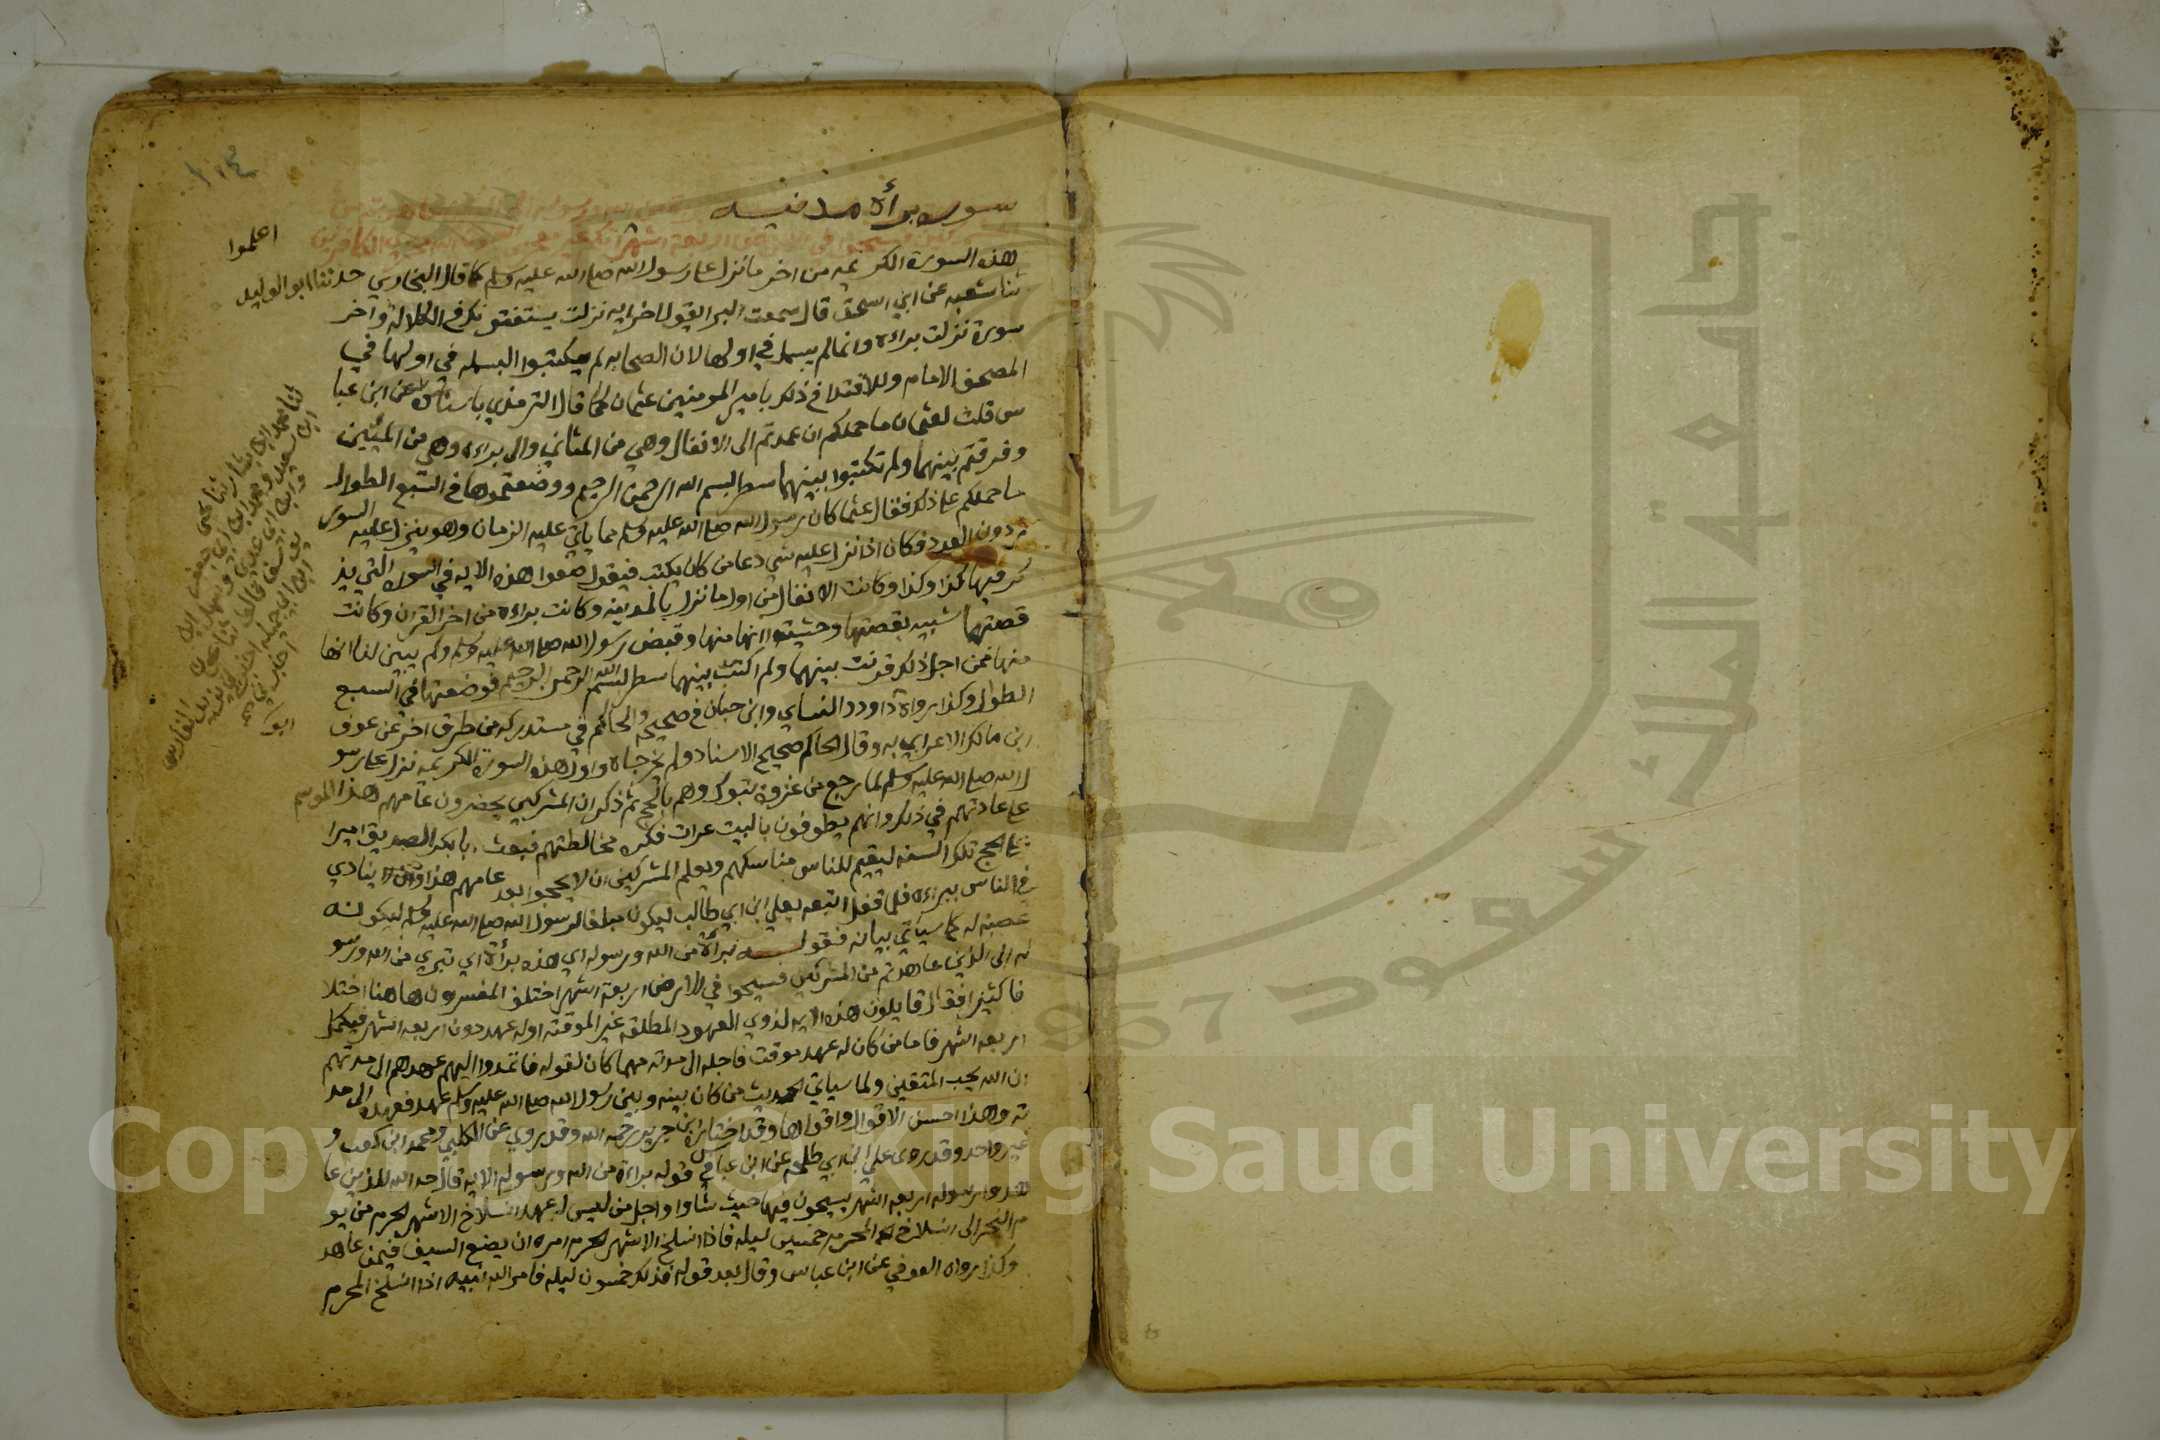 ١٠٤
سوره برأة مدنيه
اعلموا
هذه السورة الكريمه من اخر ما نزل علي رسول الله صلي الله عليه وسلم كما قال البخاري حدثنا ابو الوليد
ثنا شعبه عن ابي اسحق قال سمعت البرا يقول اخر ايه نزلت يستفتونك في الكلالة واخر
سورة نزلت براءه وانما لم يبسمل في اولها لان الصحابه لم يكتبوا البسمله في اولها في
المصحف الامام وللاقتدا في ذلك بامير المومنين عثمان كما قال الترمذي باسناده عن ابن عبا
س قلت لعثمان ما حملكم ان عمدتم الى الانفال وهي من المثاني والى براءه وهي من المئين
وفرقتم بينهما ولم تكتبوا بينهما سطر بسم الله الرحمن الرحيم ووضعتموها في السبع الطوال
ما حملكم علي ذلك فقال عثما كان رسول الله صلي الله عليه وسلم مما ياتي عليه الزمان وهو ينزل عليه السور
ة دون العدد فكان اذا نزل عليه شي دعا من كان يكتب فيقول ضعوا هذه الايه في السوره التي يذ
كر فيها كذا وكذا وكانت الانفال من اول ما نزل بالمدينه وكانت براءه من اخر القران وكانت
قصتهما شبيه بقصتها وحشيت انها منها وقبض رسول الله صلي الله عليه وسلم ولم يبين لنا انها
منها فمن اجل ذلك قرنت بينهما ولم اكتب بينهما سطر بسم الله الرحمن الرحيم فوضعتها في السبع
الطوال وكذا رواه داودد النساي وابن حبان في صحيحه والحاكم في مستدركه من طرق اخر عن عوف
ابن مالك الاعرابي به وقال الحاكم صحيح الاسناد ولم يخرجاه واول هذه السورة الكريمه نزل علي رسو
ل الله صلي الله عليه وسلم لما رجع من غزوة تبوك وهم بالحج ثم ذكر ان المشركين يحضرون عامهم هذا الموسم
علي عادتهم في ذلك وانهم يطوفون بالبيت عراة فكره مخالطتهم فبعث ابا بكر الصديق اميرا
علي الحج تلك السنه ليقيم للناس مناسكهم ويعلم المشركين ان لا يحجوا بعد عامهم هذا وان ينادي
في الناس ببراءه فلما قفل اتبعه بعلي ابن ابي طالب ليكون مبلغا لرسول الله صلي الله عليه وسلم ليكو لنه
عصبه له كما سياتي بيانه فقوله برأة من الله ورسوله اي هذه برأة اي تبري من الله ورسو
له الى الذين عاهدتم من المشركين فسيحوا في الارض اربعة اشهر اختلف المفسرون هاهنا اختلا
فا كثيرا فقال قايلون هذه الايه لذوي العهود المطلقه غير الموقته او له عهد دون اربعه اشهر فيكمل
اربعه اشهر فاما من كان له عهد موقت فاجله الى مدته مهما كان لقوله فاتموا اليهم عهدهم الى مدتهم
ان الله يحب المتقين ولما سياتي الحديث من كان بينه وبين رسول الله صلي الله عليه وسلم عهد فعهده الى مد
ته وهذا احسن الاقوال واقواها وقد اختاره ابن جرير رحمه الله وقد روي عن الكلبي ومحمد ابن كعب و
غير واحد وقد روى علي ابن ابي طلحه عن ابن عباس في قوله براءة من الله ورسوله الايه قال حد الله للذين عا
هدوا رسوله اربعه اشهر يسيحون فيها حيث شاوا واجل من ليس له عهد انسلاخ الاشهر الحرم من يو
م النحر الى انسلاخ المحرم خمسين ليله فاذا انسلخ الاشهر الحرم امره ان يضع السيف فيمن عاهد
وكذا رواه العوفي عن ابن عباس وقال بعد قوله فذلك خمسون ليله فامر الله نبيه اذا انسلخ المحرم
جامعة الملك سعود 1957
Copyright © King Saud University